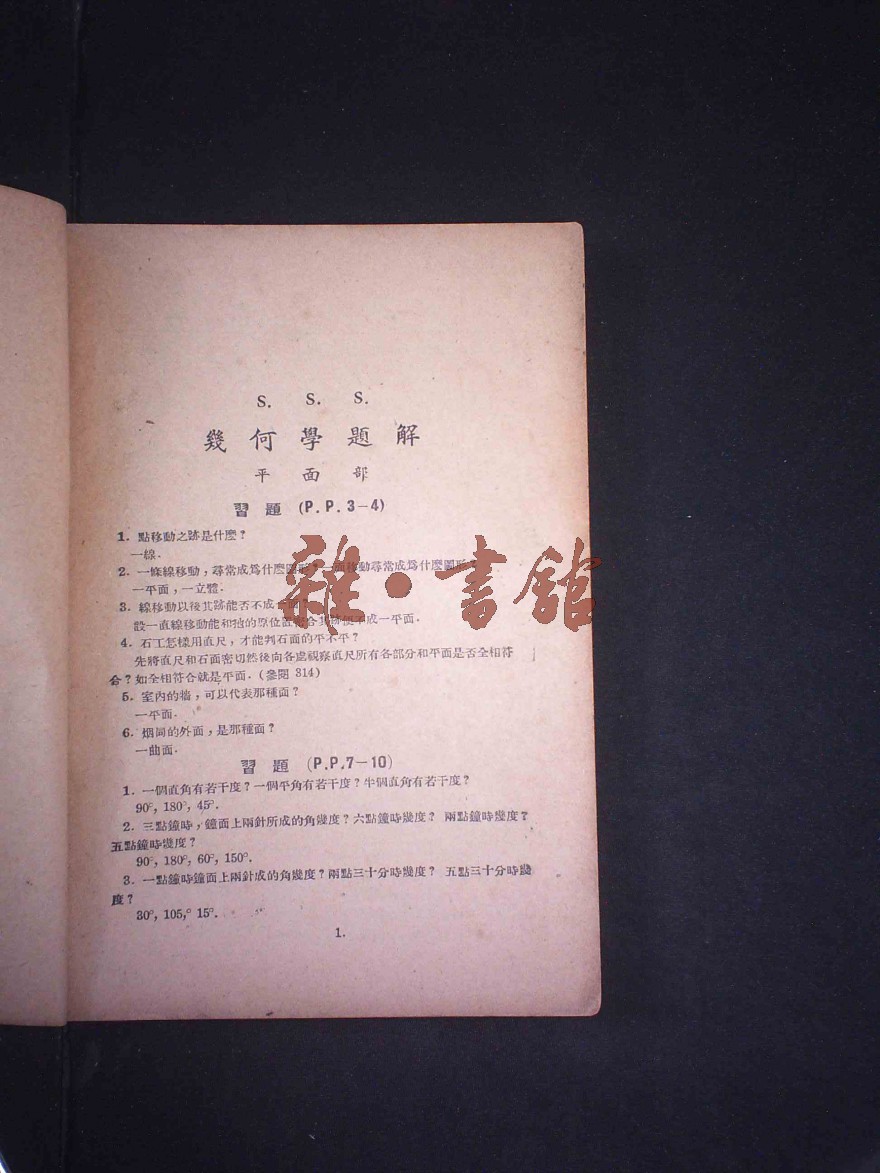 S. S. S.
幾何學題解
平面部
習題 (P.P.3—4)
1. 點移動之跡是什麼？
一線.
2. 一條線移動，尋常成爲什麼圖形？一面移動尋常成爲什麼圖形？
一平面，一立體.
3. 線移動以後其跡能否不成一面？
設一直線移動能和牠的原位置密合其跡便不成一平面.
4. 石工怎樣用直尺，才能判石面的平不平？
先將直尺和石面密切然後向各處視察直尺所有各部分和平面是否全相符
合？如全相符合就是平面.(參閱 314)
5. 室內的牆，可以代表那種面？
一平面.
6. 烟筒的外面，是那種面？
一曲面.
習題 (P.P.7—10)
1. 一個直角有若干度？一個平角有若干度？半個直角有若干度？
90°, 180°, 45°.
2. 三點鐘時，鐘面上兩針所成的角幾度？六點鐘時幾度？ 兩點鐘時幾度？
五點鐘時幾度？
90°, 180°, 60°, 150°.
3. 一點鐘時鐘面上兩針成的角幾度？兩點三十分時幾度？ 五點三十分時幾
度？
30°, 105,° 15°.
1.
雜·書館